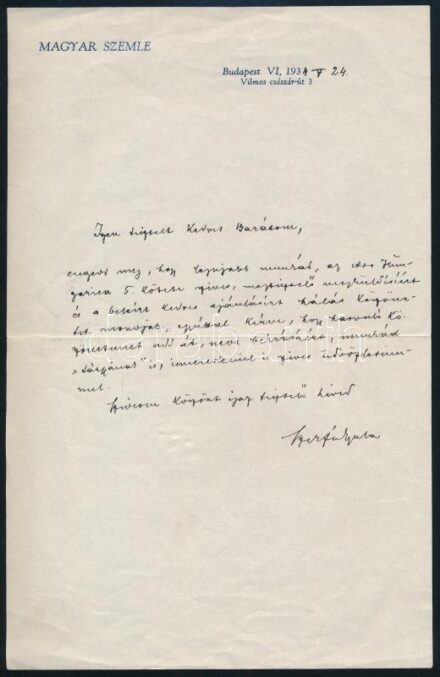 MAGYAR SZEMLE
Budapest VI, 193 V 24.
Vilmos császár-út 3
Igen tisztelt Kedves Barátom,
engedd meg, hogy legújabb munkád, az Hun-
garica 5. kötete szíves, megtisztelő megküldéséért
és a beleírt kedves ajánlásért hálás köszöne-
tet mondjak, egyúttal kérve, hogy hasonló kö-
szönetemet add át, neos leírásáért, munkád
"tárgyának" is, ismerőseimmel s szíves üdvözletem-
mel.
Szívesen köszönt igaz tisztelő híved
Szekfű Gyula